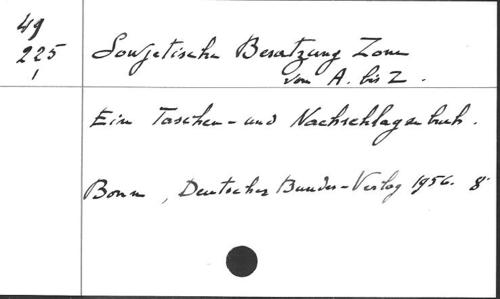 49
225
1
Sowjetische Besatzung Zone
von A. bis Z.
Ein Taschen- und Nachschlagenbuch.
Bonn, Deutscher Bundes-Verlag 1956. 8°